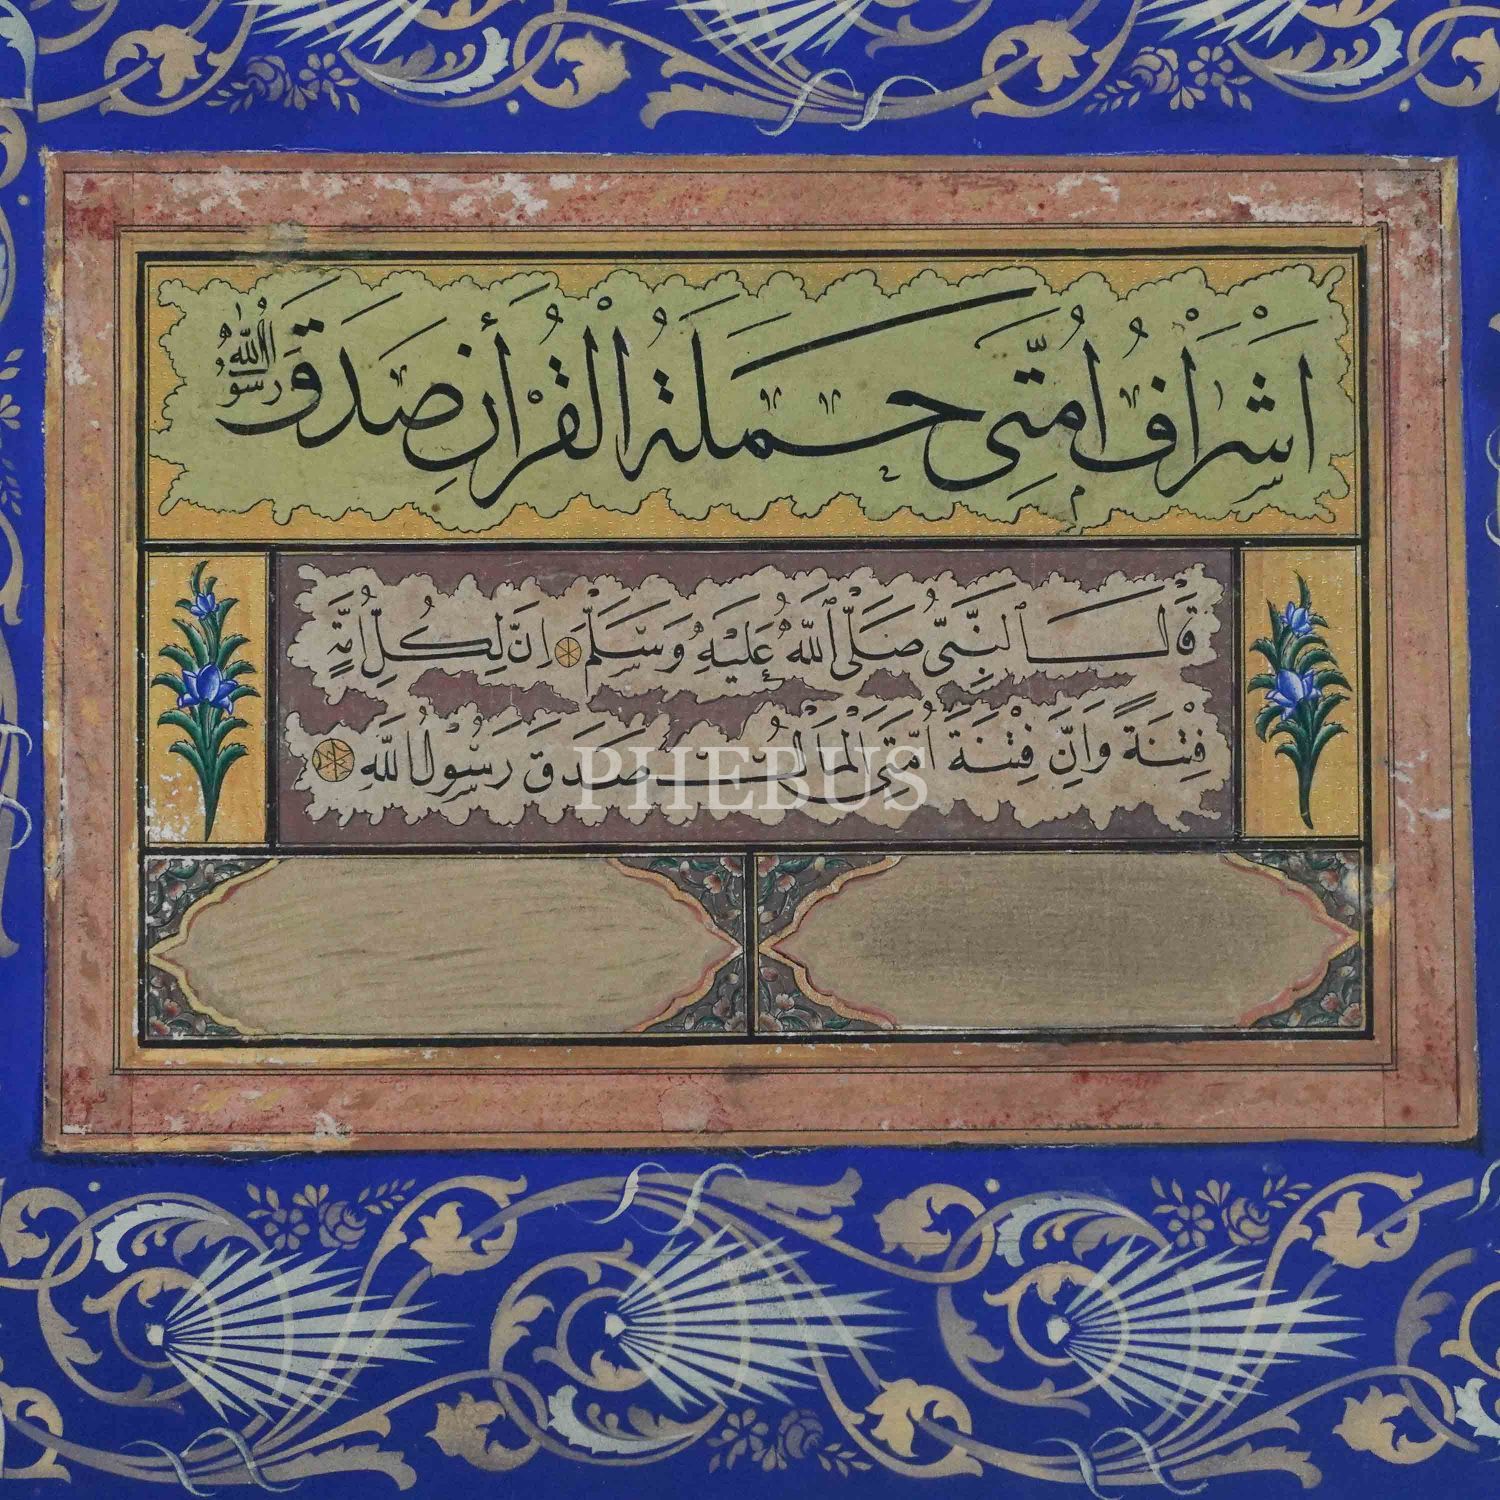 اَشْرَافُ اُمَّتِى حَمَلَةُ الْقُرْأٰنِ صَدَقَ رَسُولُ اللّٰه
قَالَ النَّبِىُّ صَلَّى اللّٰهُ عَلَيْهِ وَسَلَّمَ اِنَّ لِكُلِّ اُمَّةٍ
فِتْنَةً وَاِنَّ فِتْنَةَ اُمَّتِى الْمَالُ صَدَقَ رَسُولُ اللّٰهِ
PHEBUS